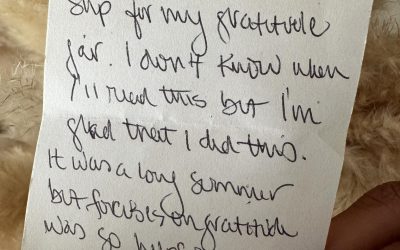 slip for my gratitude
jar. I don't know when
I'll read this but I'm
glad that I did this.
It was a long summer
but focusing on gratitude
was so